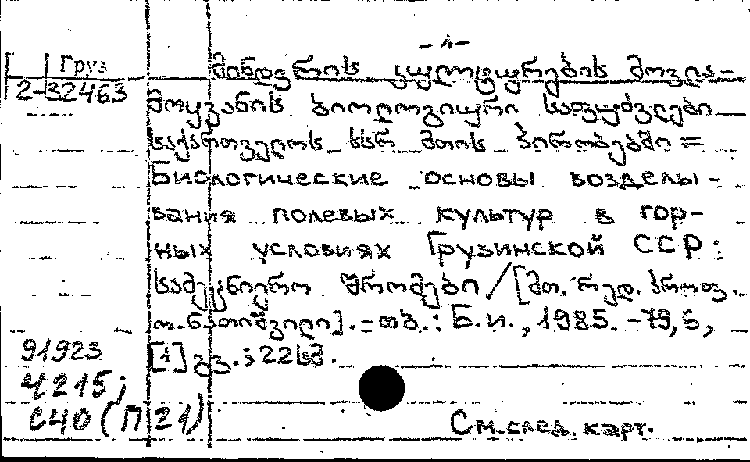 - 1 -
Груз
2-32463
მინდვრის კულტურების მოვლა-
მოყვანის ბიოლოგიური საფუძვლები
საქართველოს სსრ მთის პირობებში =
Биологические основы возделы-
вания полевых культур в гор-
ных условиях Грузинской ССР:
სამეცნიერო შრომები / [მთ. რედ. პროფ.
ო. ნათიშვილი]. - თბ.: Б.и., 1985. - 79, 6,
[1] გვ.; 22 სმ.
91923
4215;
С40 (П 21)
См. след. карт.